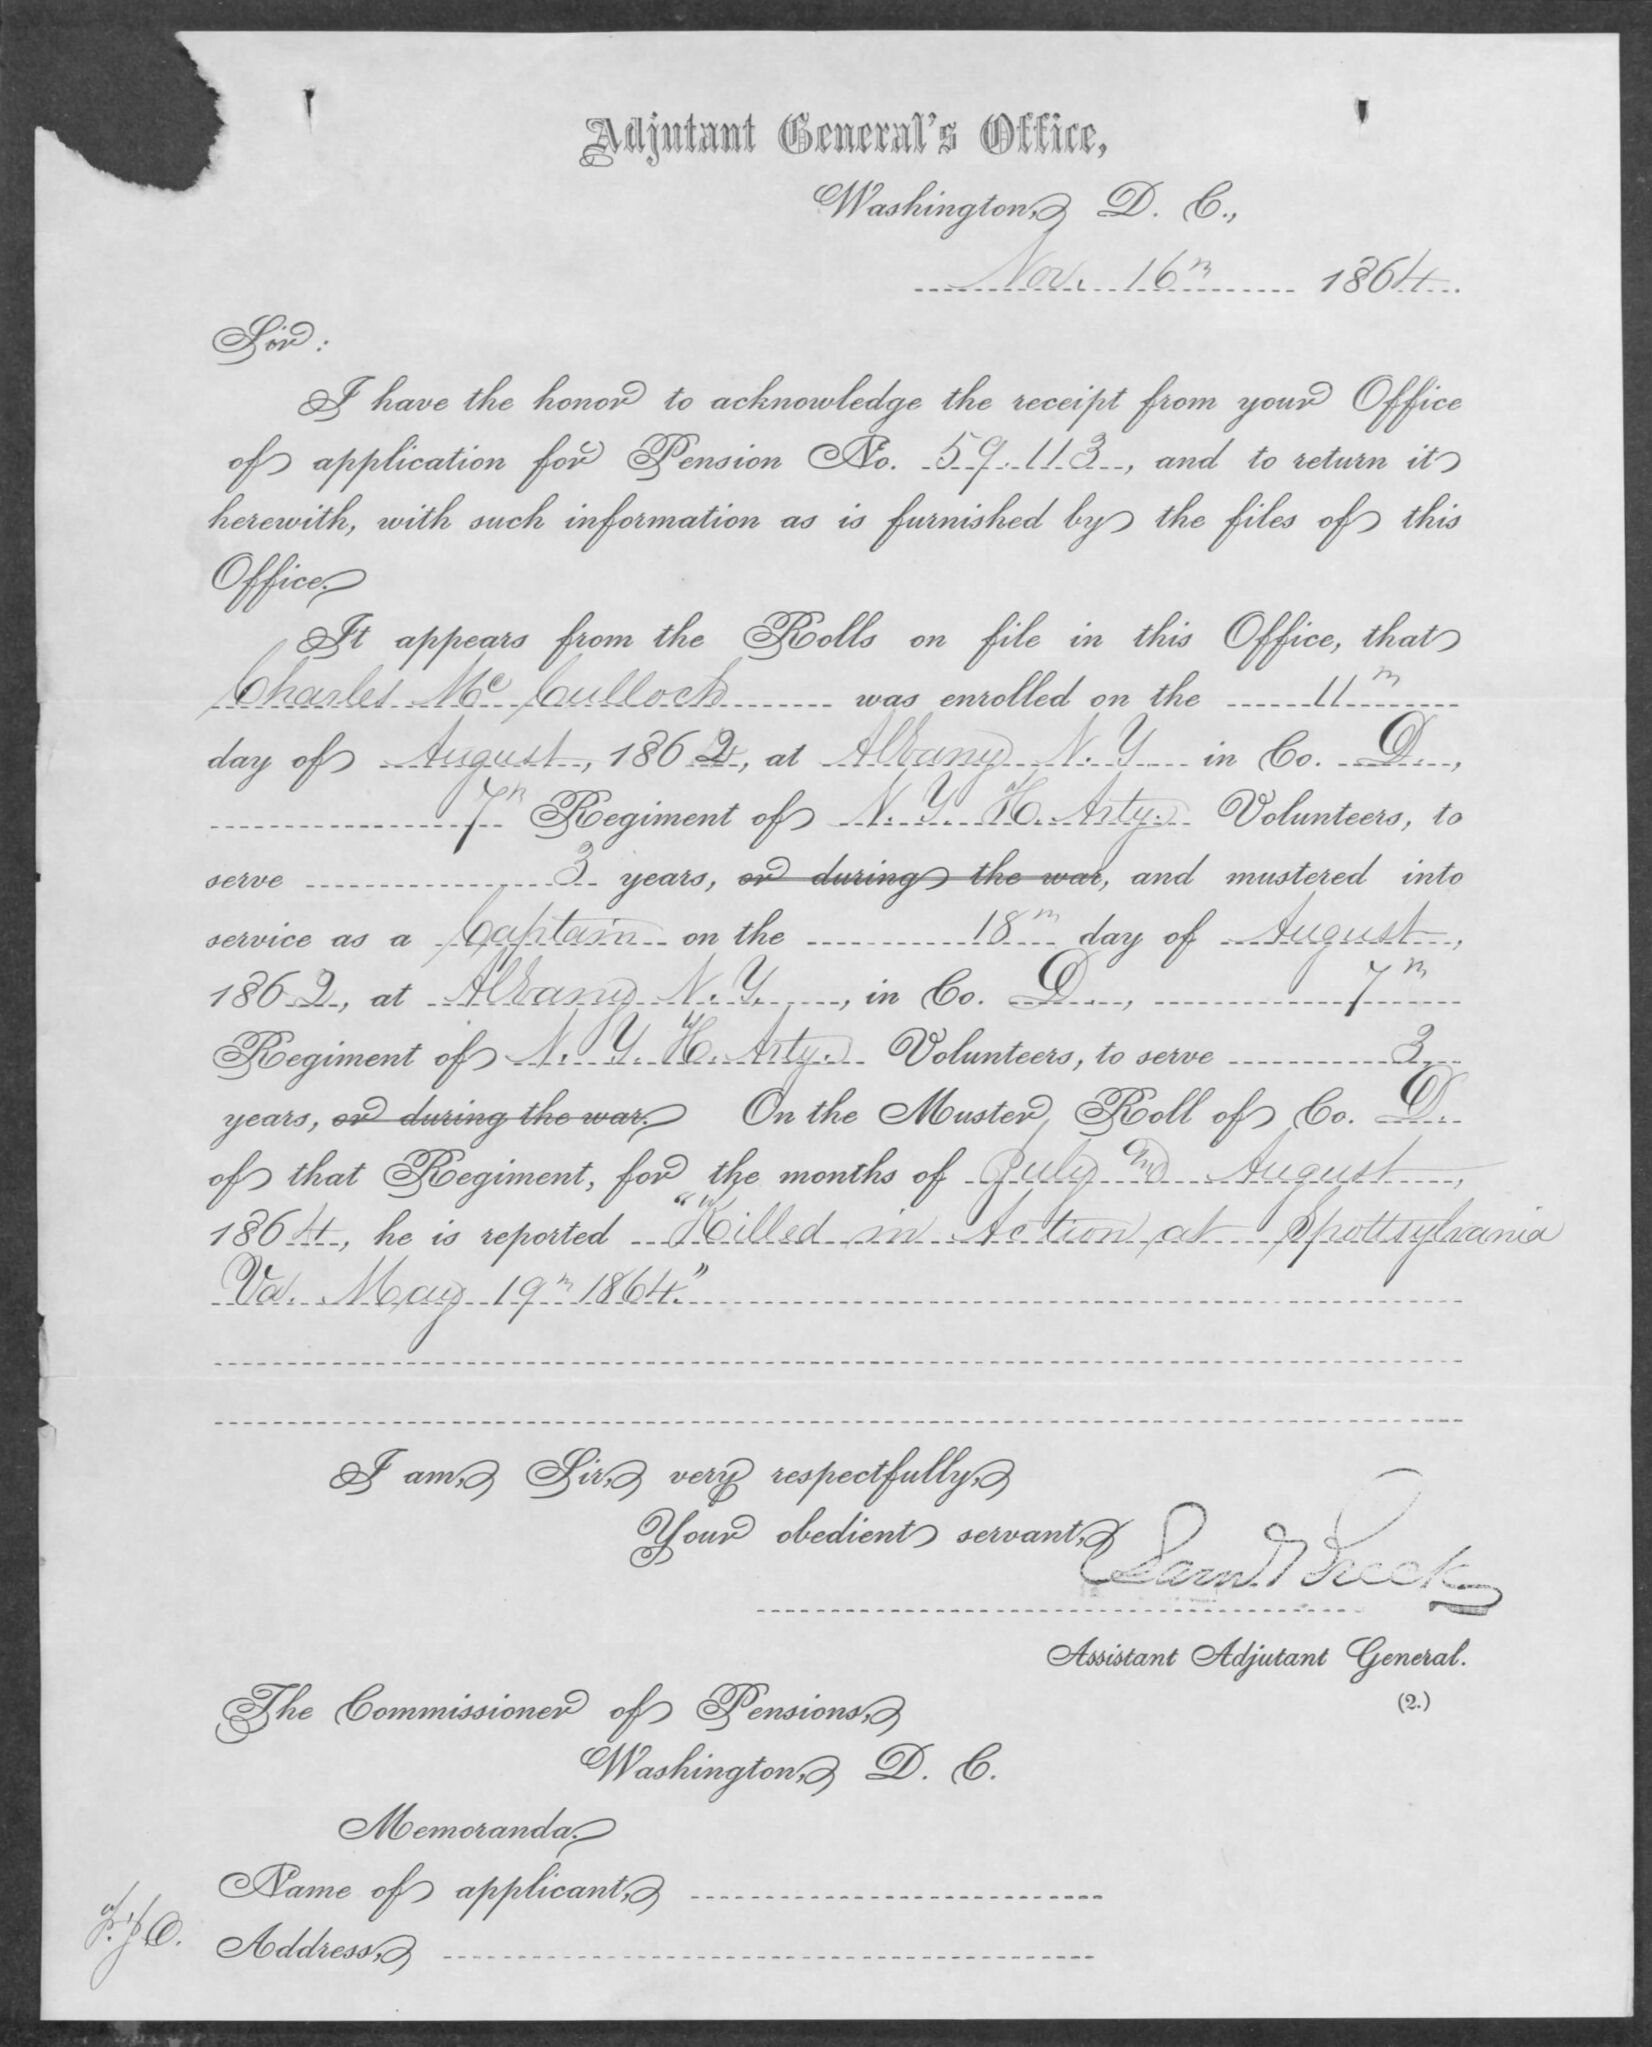 Adjutant General's Office,
Washington, D. C.,
Nov. 16th 1864.
Sir:
I have the honor to acknowledge the receipt from your Office
of application for Pension No. 59.113, and to return it
herewith, with such information as is furnished by the files of this
Office.
It appears from the Rolls on file in this Office, that
Charles Mc Culloch was enrolled on the 11th
day of August, 1862, at Albany N. Y. in Co. D.,
7th Regiment of N. Y. H. Arty. Volunteers, to
serve 3 years, or during the war, and mustered into
service as a Captain on the 18th day of August,
1862, at Albany N. Y., in Co. D., 7th
Regiment of N. Y. H. Arty. Volunteers, to serve 3
years, or during the war. On the Muster Roll of Co. D.
of that Regiment, for the months of July and August,
1864, he is reported "Killed in Action at Spottsylvania
Va. May 19th 1864."
I am, Sir, very respectfully,
Your obedient servant,
Saml Breck
Assistant Adjutant General.
(2.)
The Commissioner of Pensions,
Washington, D. C.
Memoranda.
Name of applicant,
Address,